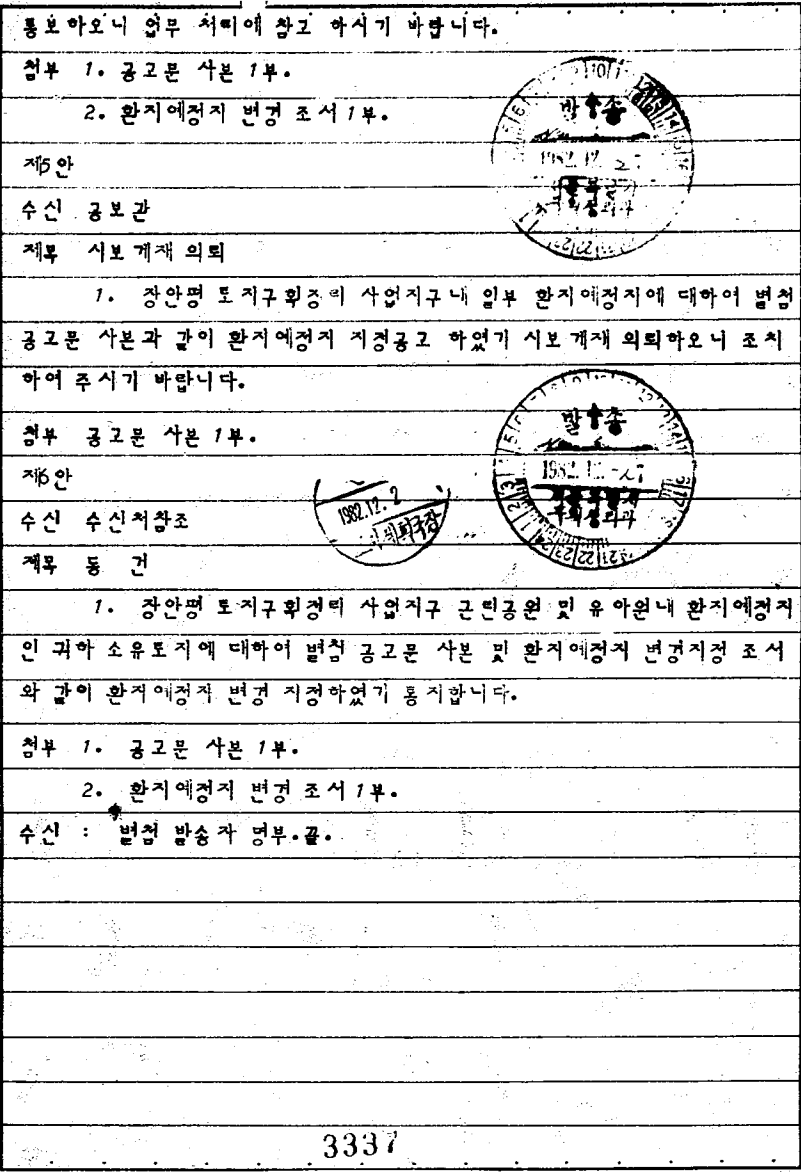 통보하오니 업무 처리에 참고 하시기 바랍니다.
첨부 1. 공고문 사본 1부.
2. 환지예정지 변경 조서 1부.
발송
1982. 12.
제5안
수신 공보관
제목 시보 게재 의뢰
1. 장안평 토지구획정리 사업지구내 일부 환지예정지에 대하여 별첨
공고문 사본과 같이 환지예정지 지정공고 하였기 시보 게재 의뢰하오니 조치
하여 주시기 바랍니다.
발송
첨부 공고문 사본 1부.
1982. 12.
제6안
1982.12. 2
수신 수신처참조
제목 동 건
1. 장안평 토지구획정리 사업지구 근린공원 및 유아원내 환지예정지
인 귀하 소유토지에 대하여 별첨 공고문 사본 및 환지예정지 변경지정 조서
와 같이 환지예정지 변경 지정하였기 통지합니다.
첨부 1. 공고문 사본 1부.
2. 환지예정지 변경 조서 1부.
수신 : 별첨 발송자 명부.끝.
3337